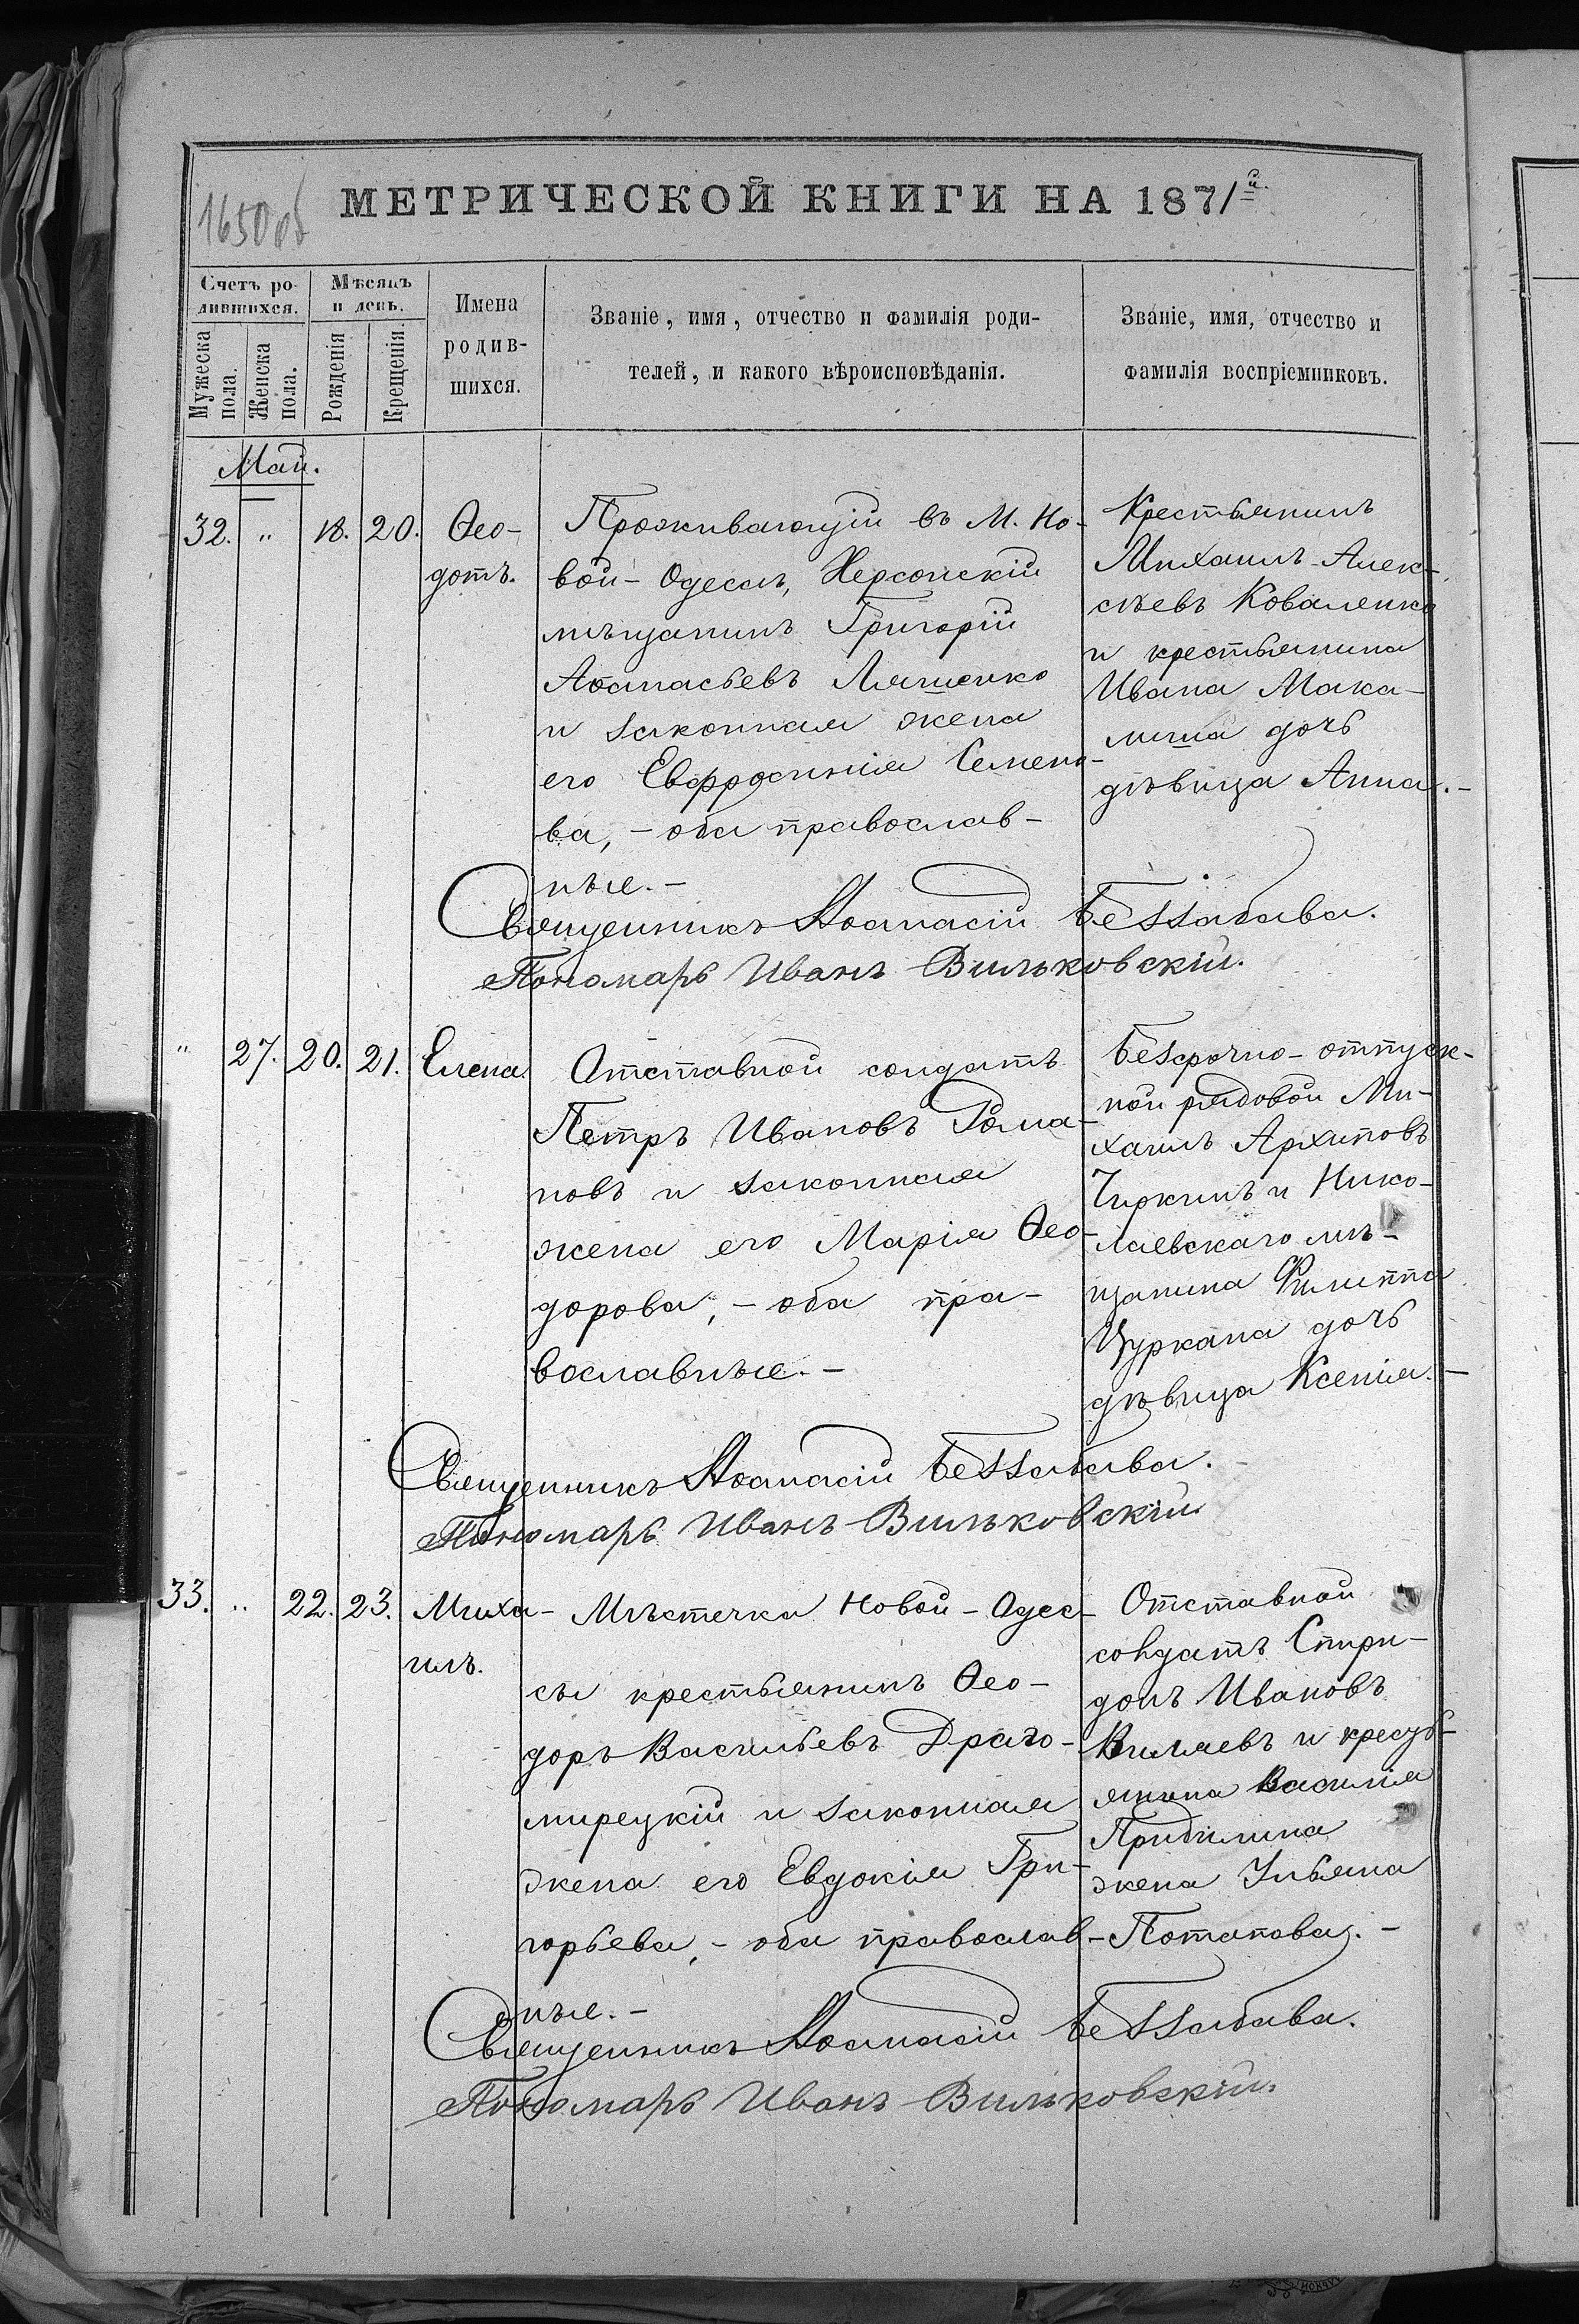 1650 об
МЕТРИЧЕСКОЙ КНИГИ НА 1871й.
Счетъ ро-
дившихся.
Мѣсяцъ
и день.
Мужеска пола.
Женска пола.
Рожденія
Крещенія.
Имена
родив-
шихся.
Званіе, имя, отчество и фамилія роди-
телей, и какого вѣроисповѣданія.
Званіе, имя, отчество и
фамилія воспріемниковъ.
Май.
32. " 18. 20.
Ѳео-
дотъ.
Проживающій въ М. Но-
вой-Одессѣ, Херсонскій
мѣщанинъ Григорій
Аѳанасьевъ Ляшенко
и законная жена
его Евфросинія Семено-
ва, - оба православ-
ные. -
Крестьянинъ
Михаилъ Алек-
сѣевъ Коваленко
и крестьянина
Ивана Мака-
лиша дочь
дѣвица Анна. -
Священникъ Аѳанасій Беззабава.
Пономарь Иванъ Вильковскій.
" 27. 20. 21.
Елена.
Отставной солдатъ
Петръ Ивановъ Рома-
новъ и законная
жена его Марія Ѳео-
дорова, - оба пра-
вославные. -
Безсрочно-отпуск-
ной рядовой Ми-
хаилъ Архиповъ
Чиркинъ и Нико-
лаевскаго мѣ-
щанина Филиппа
Цуркана дочь
дѣвица Ксенія. -
Священникъ Аѳанасій Беззабава.
Пономарь Иванъ Вильковскій
33. " 22. 23.
Миха-
илъ.
Мѣстечка Новой-Одес-
сы крестьянинъ Ѳео-
доръ Васильевъ Драго-
мирецкій и законная
жена его Евдокія Гри-
горьева, - оба православ-
ные. -
Отставной
солдатъ Спири-
донъ Ивановъ
и кресть-
янина Василія
жена Ульяна
Потапова. -
Священникъ Аѳанасій Беззабава.
Пономарь Иванъ Вильковскій.